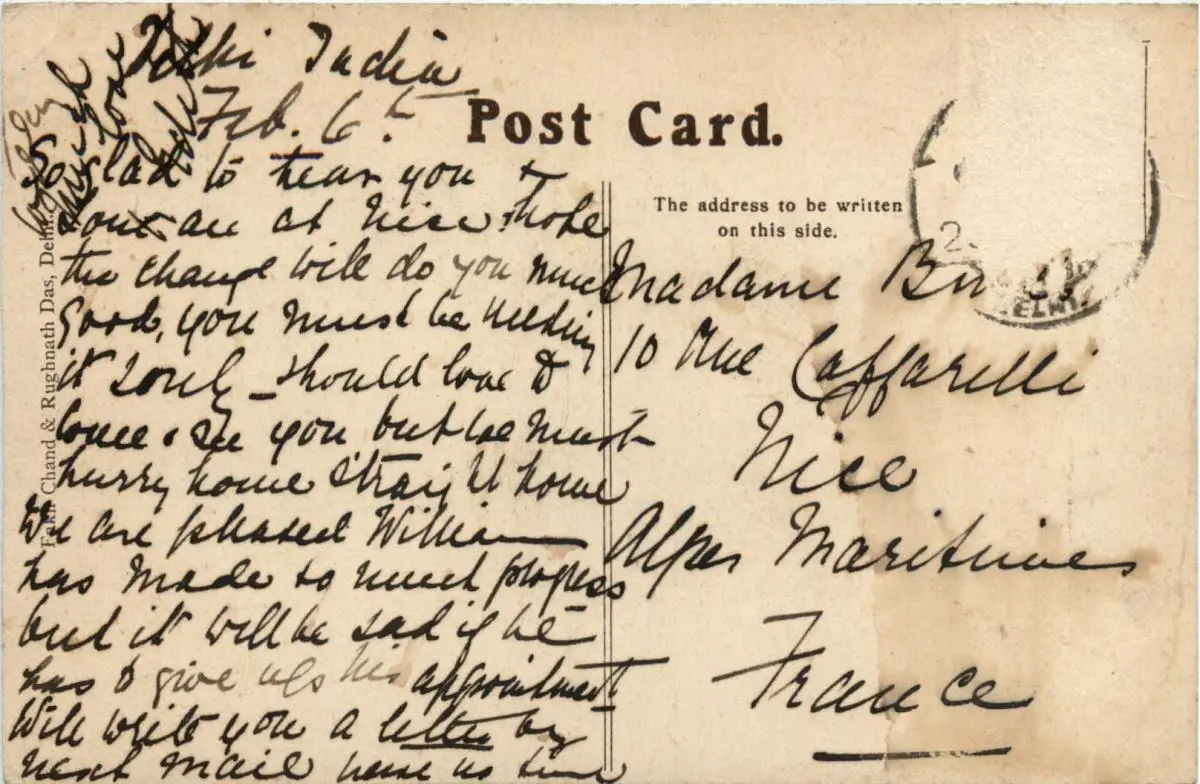 Delhi India
Feb. 6th
So glad to hear you &
are at Nice & hope
the change will do you much
good, you must be needing
it sorely - should love to
come & see you but we must
hurry home straight home
We are pleased William
has made so much progress
but it will be sad if he
has to give up his appointment
Will write you a letter by
next mail have no time
much love
Post Card.
The address to be written
on this side.
Madame
10 Rue Caffarelli
Nice
Alpes Maritimes
France
DELHI
Chand & Rughnath Das, Delhi.